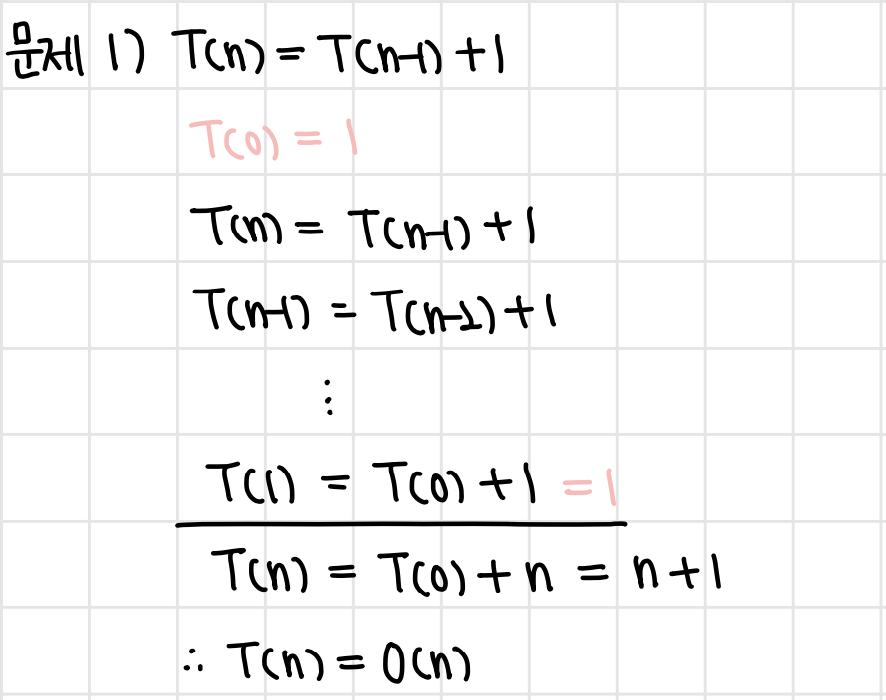 문제 1) T(n) = T(n-1) + 1
T(0) = 1
T(n) = T(n-1) + 1
T(n-1) = T(n-2) + 1
⋮
T(1) = T(0) + 1 = 1
T(n) = T(0) + n = n + 1
∴ T(n) = O(n)